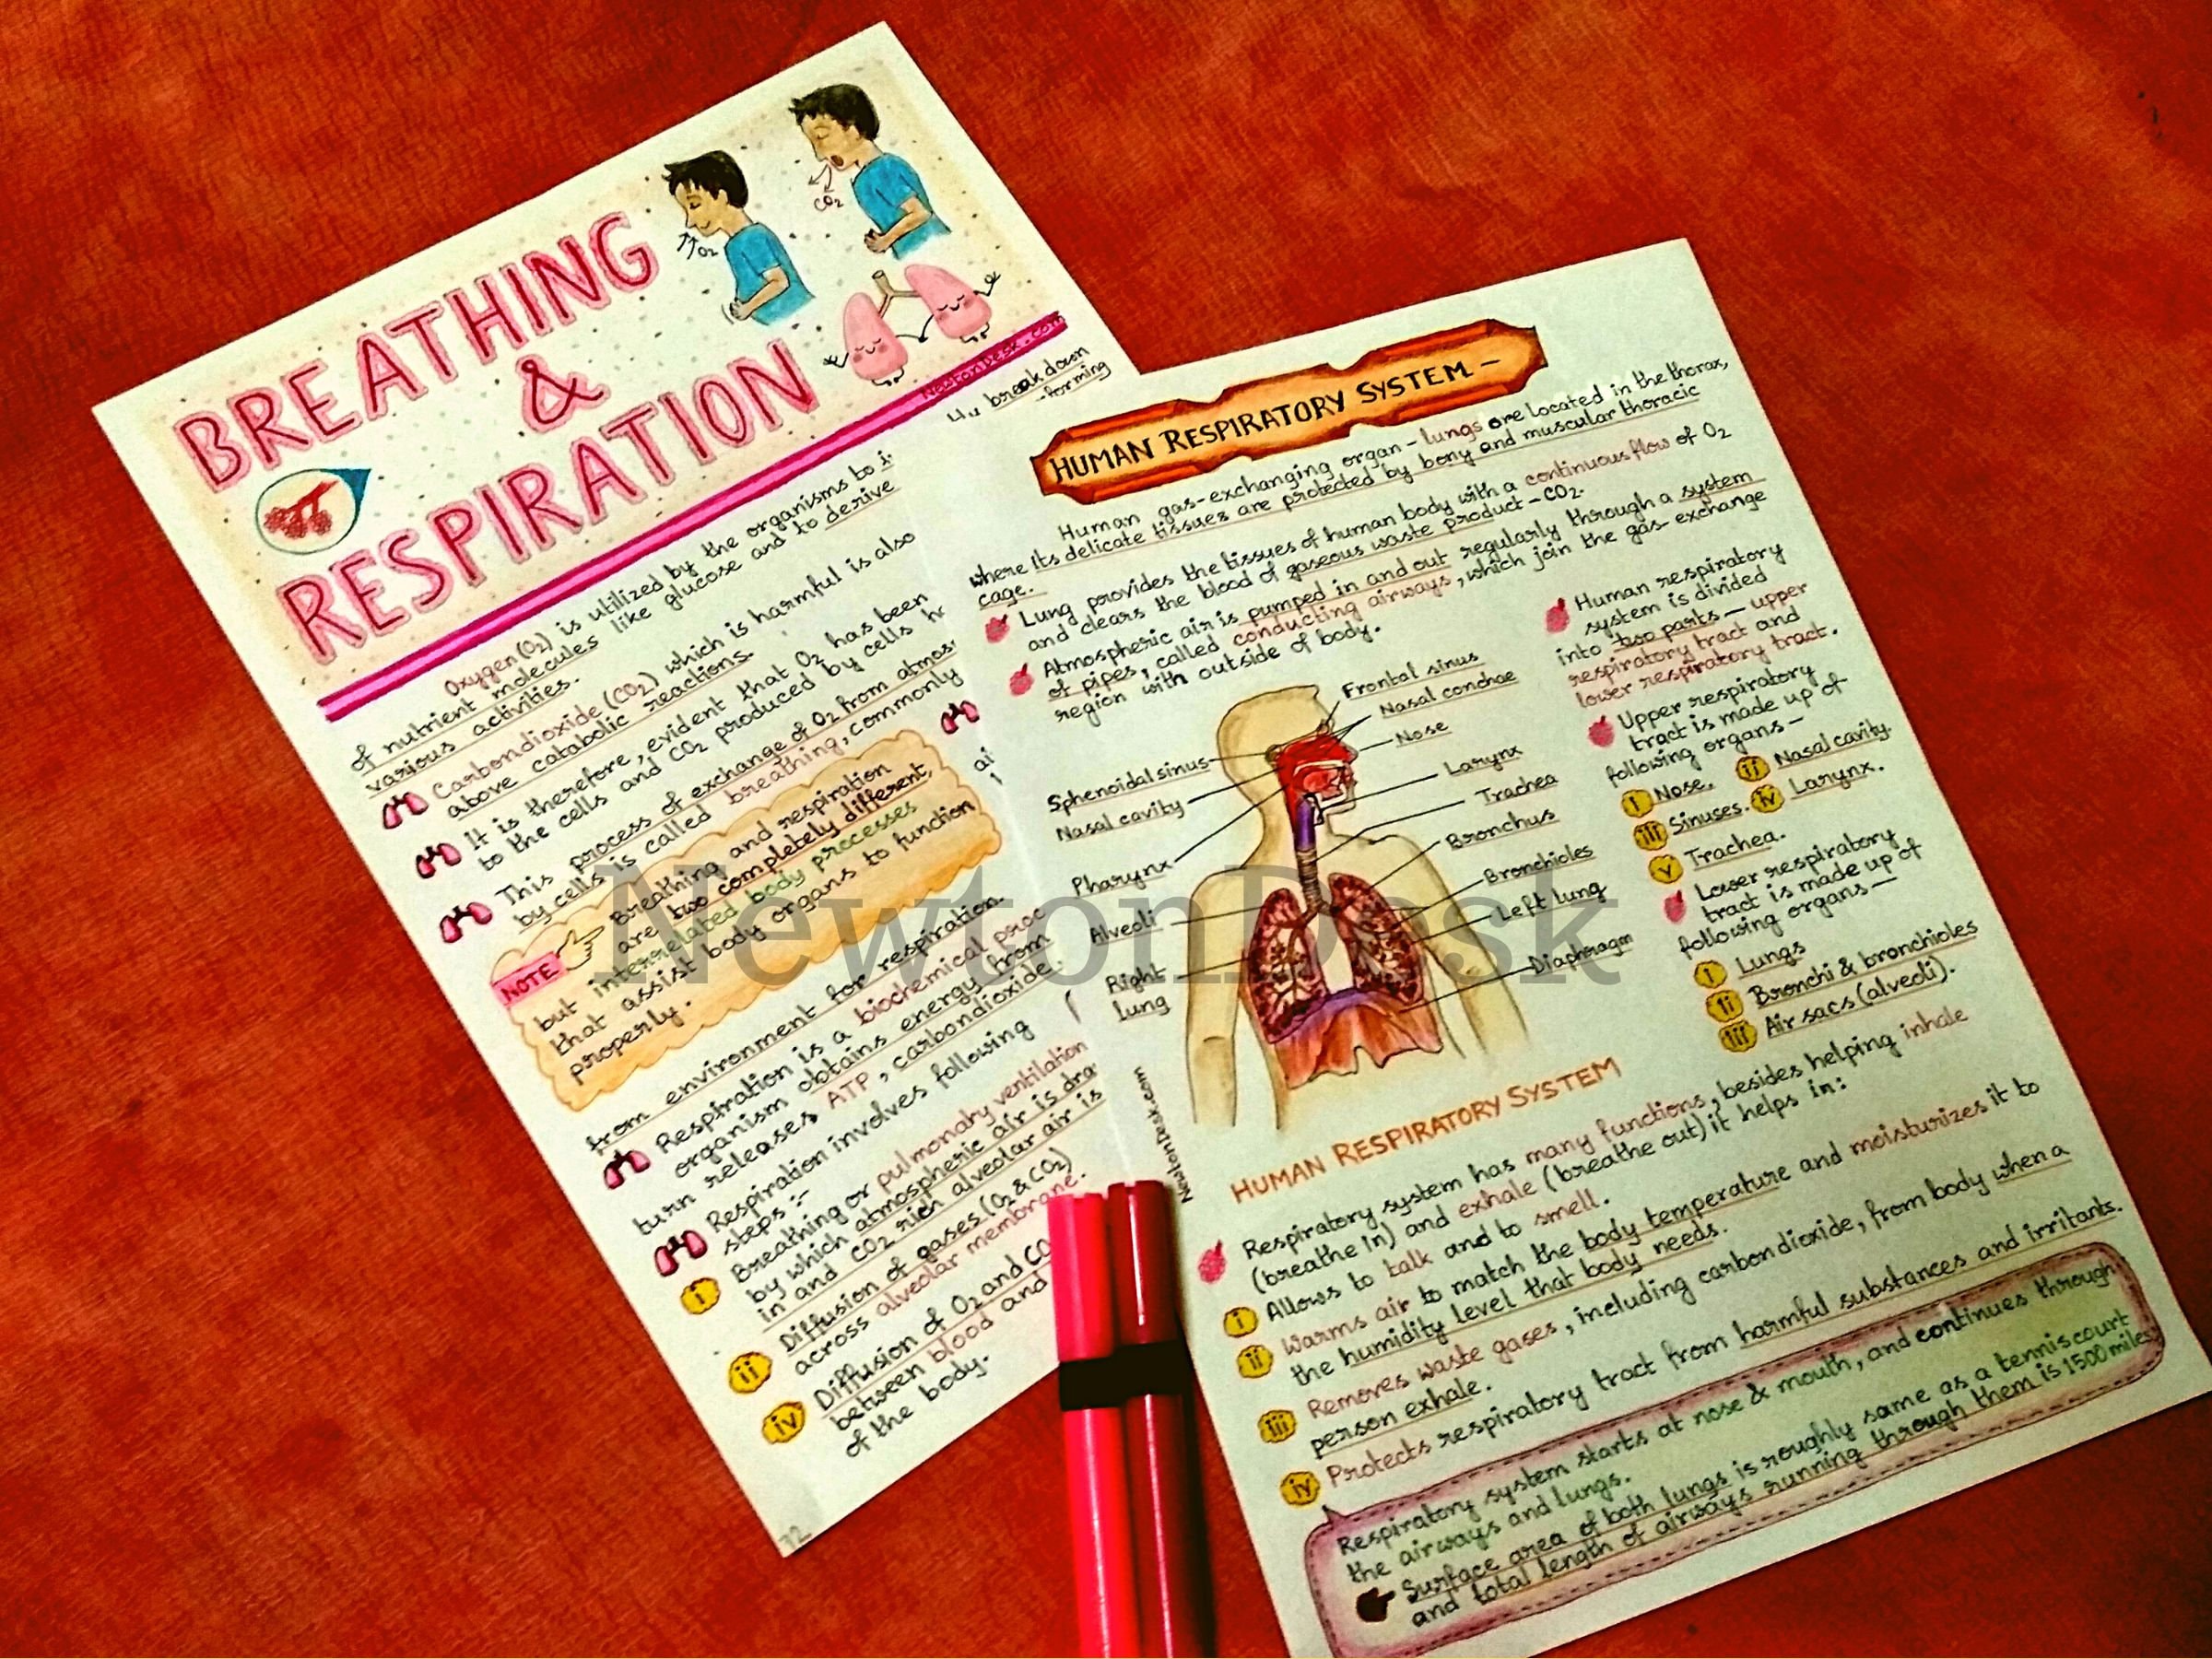 BREATHING
&
RESPIRATION
O2
CO2
NewtonDesk.com
break down
-forming
Oxygen (O2) is utilized by the organisms to
of nutrient molecules like glucose and to derive
various activities.
Carbondioxide (CO2) which is harmful is also
above catabolic reactions.
It is therefore, evident that O2 has been
to the cells and CO2 produced by cells
This process of exchange of O2 from
by cells is called breathing, commonly
NOTE
Breathing and respiration
are two completely different,
but interrelated body processes
that assist body organs to function
properly.
from environment for respiration.
Respiration is a biochemical
organism obtains energy from
turn releases ATP, carbondioxide
Respiration involves following
steps :-
i Breathing or pulmonary ventilation
by which atmospheric air is
in and CO2 rich alveolar air is
ii Diffusion of gases (O2 & CO2)
across alveolar membrane.
iv Diffusion of O2 and
between blood and
of the body.
72
HUMAN RESPIRATORY SYSTEM –
Human gas-exchanging organ - lungs are located in the thorax,
where its delicate tissues are protected by bony and muscular thoracic
cage.
Lung provides the tissues of human body with a continuous flow of O2
and clears the blood of gaseous waste product - CO2.
Atmospheric air is pumped in and out regularly through a system
of pipes, called conducting airways, which join the gas-exchange
region with outside of body.
Frontal sinus
Nasal conchae
Nose
Larynx
Trachea
Bronchus
Bronchioles
Left lung
Diaphragm
Sphenoidal sinus
Nasal cavity
Pharynx
Alveoli
Right
lung
NewtonDesk.com
HUMAN RESPIRATORY SYSTEM
Human respiratory
system is divided
into two parts – upper
respiratory tract and
lower respiratory tract.
Upper respiratory
tract is made up of
following organs –
i Nose. ii Nasal cavity.
iii Sinuses. iv Larynx.
v Trachea.
Lower respiratory
tract is made up of
following organs –
i Lungs
ii Bronchi & bronchioles
iii Air sacs (alveoli).
Respiratory system has many functions, besides helping inhale
(breathe in) and exhale (breathe out) it helps in:
i Allows to talk and to smell.
ii Warms air to match the body temperature and moisturizes it to
the humidity level that body needs.
iii Removes waste gases, including carbondioxide, from body when a
person exhale.
iv Protects respiratory tract from harmful substances and irritants.
Respiratory system starts at nose & mouth, and continues through
the airways and lungs.
Surface area of both lungs is roughly same as a tennis court
and total length of airways running through them is 1500 miles
NewtonDesk